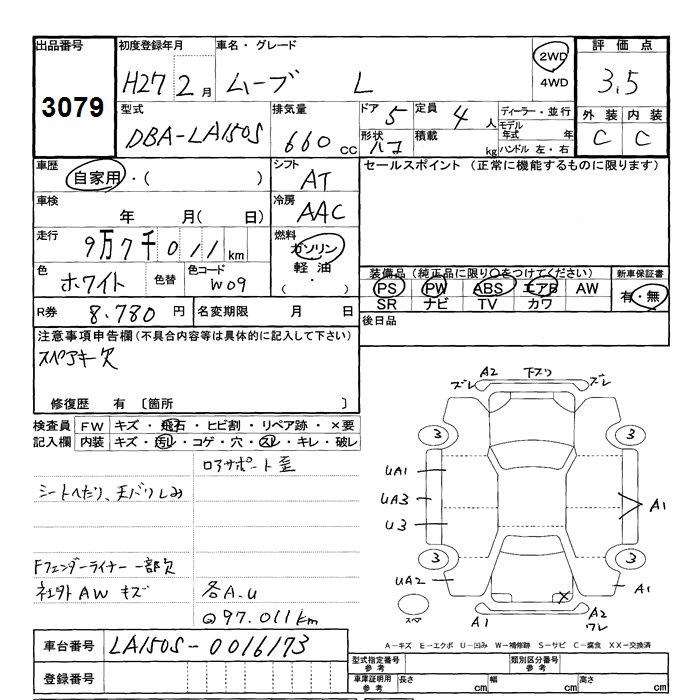 出品番号 初度登録年月 車名・グレード 2WD 評価点
3079 H27 2月 ムーブ L 4WD 3.5
型式 排気量 ドア 5 定員 4人 ディーラー・並行 外装 内装
DBA-LA150S 660cc 形状 ハコ 積載 kg モデル年式 年 C C
ハンドル 左・右
車歴 シフト セールスポイント (正常に機能するものに限ります)
自家用・( ) AT
車検 冷房
年 月( 日) AAC
走行 燃料
9万7千011km ガソリン
軽油
色 色替 色コード ・
ホワイト W09 ( )
装備品 (純正品に限り○をつけてください) 新車保証書
PS PW ABS エアB AW 有・無
SR ナビ TV カワ
R券 8.780円 名変期限 月 日 後日品
注意事項申告欄 (不具合内容等は具体的に記入して下さい)
スペアキー欠
修復歴 有 〔箇所 〕
検査員 FW キズ・飛石・ヒビ割・リペア跡・×要
記入欄 内装 キズ・汚レ・コゲ・穴・スレ・キレ・破レ
ロアサポート歪
シートヘたり、天バリしみ
Fフェンダーライナー 一部欠
社外AW キズ 各A.U
@97.011km
車台番号 LA150S-0016173
登録番号
A2 下スリ
ズレ ズレ
3 3
UA1
UA3 A1
U3
3 3
UA2 A1
X
スペア A1 A2
ワレ
A-キズ E-エクボ U-凹み W-補修跡 S-サビ C-腐食 XX-交換済
型式指定番号 参考 類別区分番号 参考
車庫証明用 参考 長さ cm 幅 cm 高さ cm